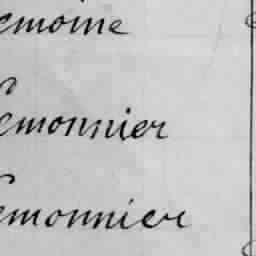 emoine
emonnier
emonnier